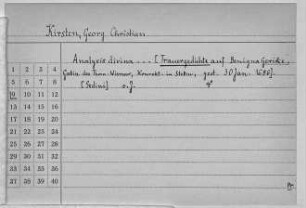 Kirsten, Georg Christian
Analysis divina --- [Trauergedichte auf Benigna Gericke,
Gattin des Konr. Werner, Konrekt. in Stettin, gest. 30 Jan. 1680].
[Sedini] o. J. 4°
1 2 3 4
5 6 7 8
9 10 11 12
13 14 15 16
17 18 19 20
21 22 23 24
25 26 27 28
29 30 31 32
33 34 35 36
37 38 39 40